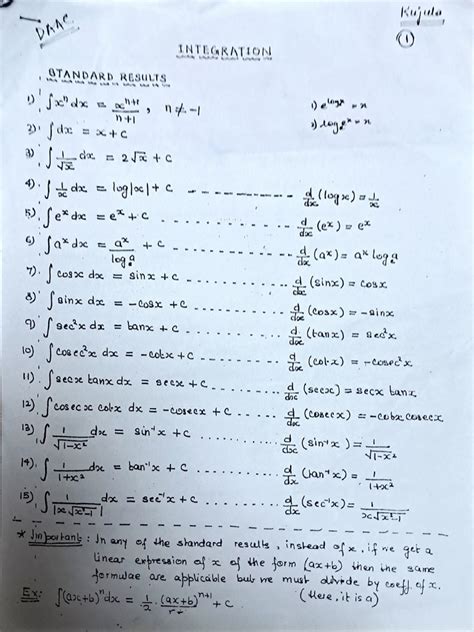 DAAC
Kujula
1
INTEGRATION
STANDARD RESULTS
1) ∫xⁿdx = xⁿ⁺¹/n+1, n≠-1 1) e^logx = x
2) ∫dx = x+c 2) logeˣ = x
3) ∫1/√x dx = 2√x + c
4) ∫1/x dx = log|x| + c ---------- d/dx (logx) = 1/x
5) ∫eˣdx = eˣ + c ---------- d/dx (eˣ) = eˣ
6) ∫aˣdx = aˣ/logₑa + c ---------- d/dx (aˣ) = aˣ logₑa
7) ∫cosx dx = sinx + c ---------- d/dx (sinx) = cosx
8) ∫sinx dx = -cosx + c ---------- d/dx (cosx) = -sinx
9) ∫sec²x dx = tanx + c ---------- d/dx (tanx) = sec²x
10) ∫cosec²x dx = -cotx + c ---------- d/dx (cotx) = -cosec²x
11) ∫secx tanx dx = secx + c ---------- d/dx (secx) = secx tanx
12) ∫cosecx cotx dx = -cosecx + c ---------- d/dx (cosecx) = -cotx cosecx
13) ∫1/√1-x² dx = sin⁻¹x + c ---------- d/dx (sin⁻¹x) = 1/√1-x²
14) ∫1/1+x² dx = tan⁻¹x + c ---------- d/dx (tan⁻¹x) = 1/1+x²
15) ∫1/|x|√x²-1 dx = sec⁻¹x + c ---------- d/dx (sec⁻¹x) = 1/x√x²-1
* Important: In any of the standard results, instead of x, if we get a
linear expression of x of the form (ax+b) then the same
formulae are applicable but we must divide by coeff. of x.
(Here, it is a)
Ex: ∫(ax+b)ⁿdx = 1/ . (ax+b)ⁿ⁺¹/ + c